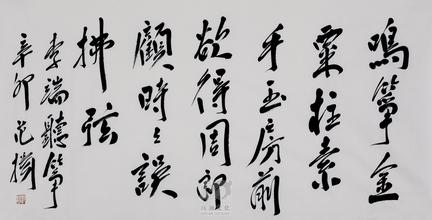 鳴箏金
粟柱素
手玉房前
欲得周郎
顧時時誤
拂弦
李端聽箏
辛卯范機